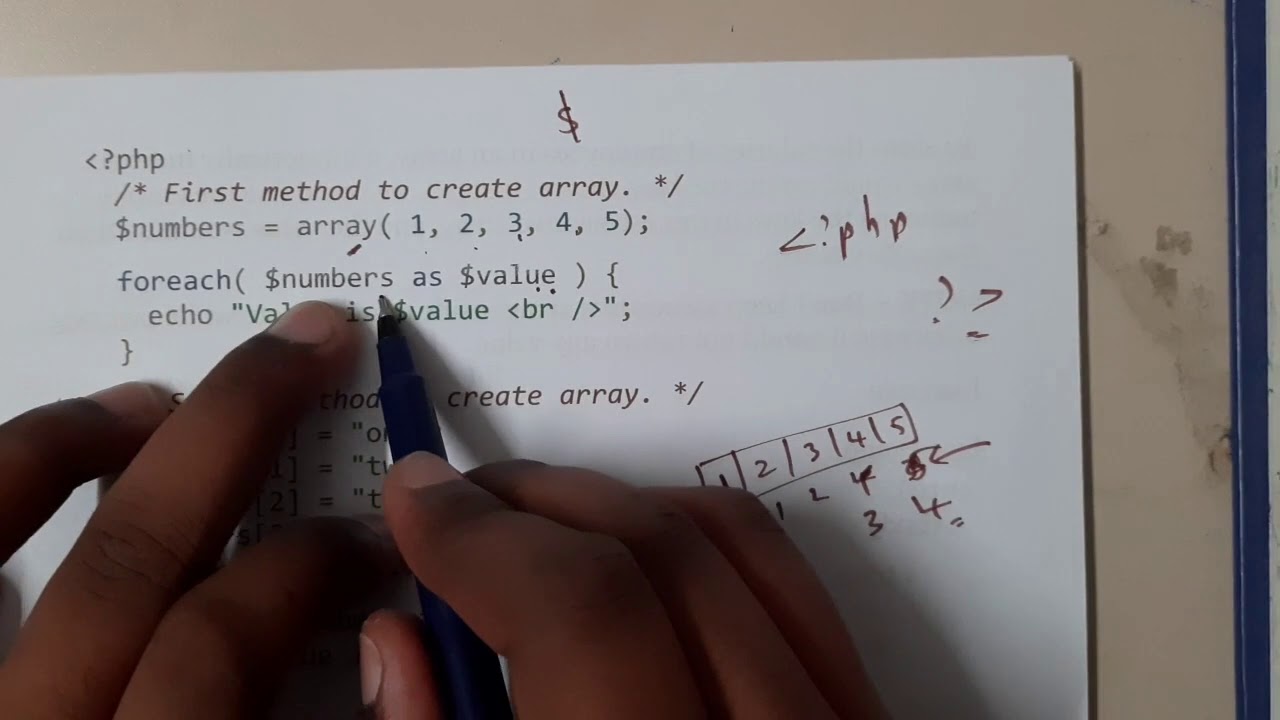 $
<?php
/* First method to create array. */
$numbers = array( 1, 2, 3, 4, 5);
foreach( $numbers as $value ) {
echo "Va is $value <br />";
}
create array. */
] = "o
1] = "t
[2] = "t
s[
<?php
?>
1 2 3 4 5
1 2 4
3 4